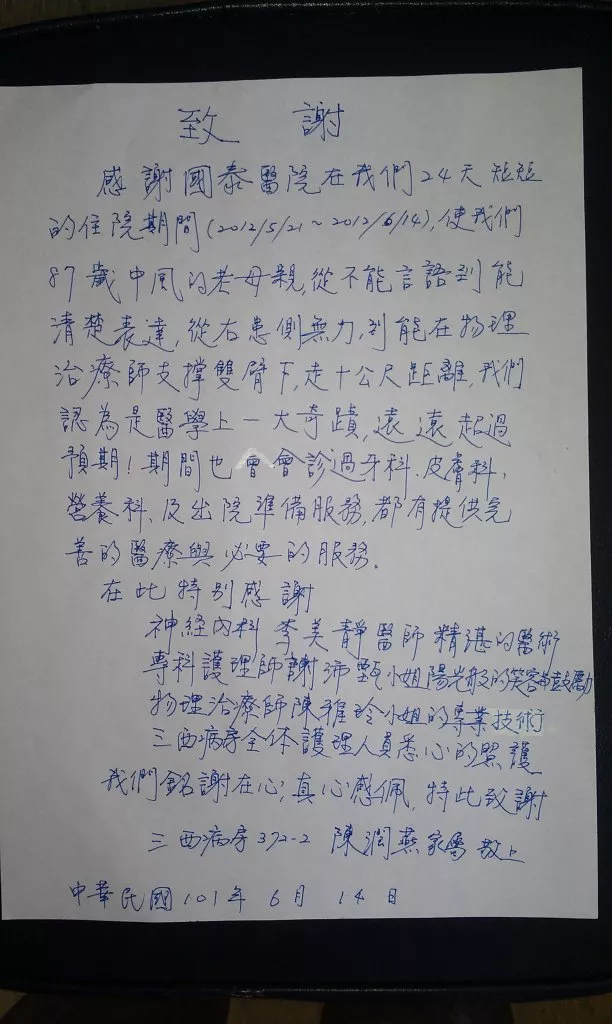 致 謝
感謝國泰醫院在我們24天短短
的住院期間(2012/5/21~2012/6/14),使我們
87歲中風的老母親,從不能言語到能
清楚表達,從右患側無力,到能在物理
治療師支撐雙臂下,走十公尺距離,我們
認為是醫學上一大奇蹟,遠遠超過
預期!期間也曾會診過牙科、皮膚科、
營養科、及出院準備服務,都有提供完
善的醫療與必要的服務。
在此特別感謝
神経內科 李美靜醫師 精湛的醫術
專科護理師謝 甄小姐陽光般的笑容與鼓勵
物理治療師陳雅玲小姐的專業技術
三西病房全体護理人員悉心的照護
我們銘謝在心,真心感佩,特此致謝
三西病房372-2 陳潤燕家屬敬上
中華民國101年6月14日